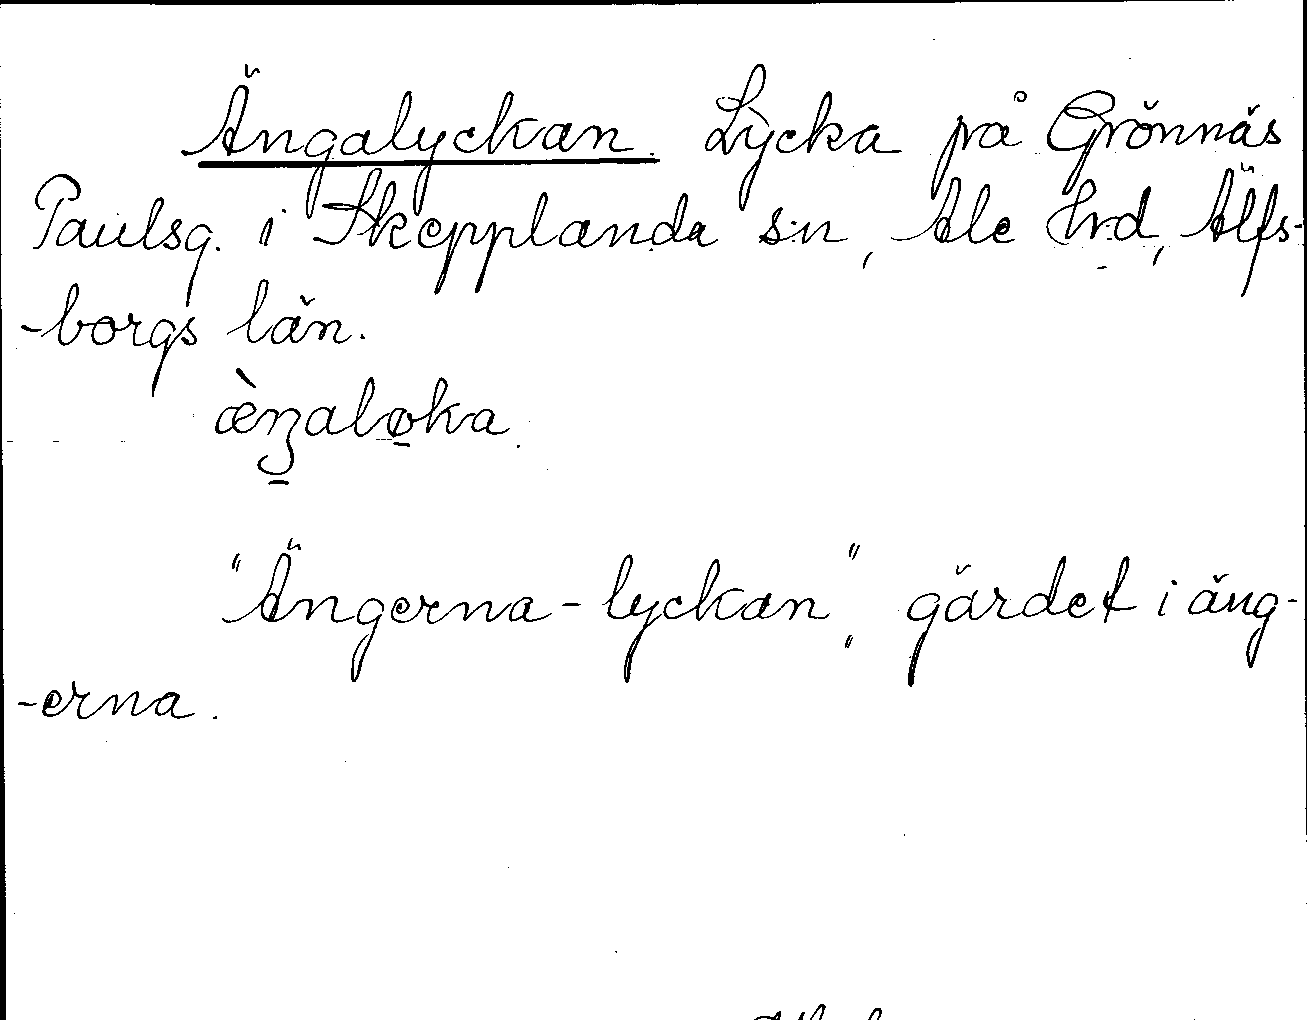 Ängalyckan. Lycka på Grönnäs
Paulsg. i Skepplanda s:n, Ale hrd, Älfs-
-borgs län.
æ̀ŋaløka.
"Ängerna-lyckan", gärdet i äng-
-erna.